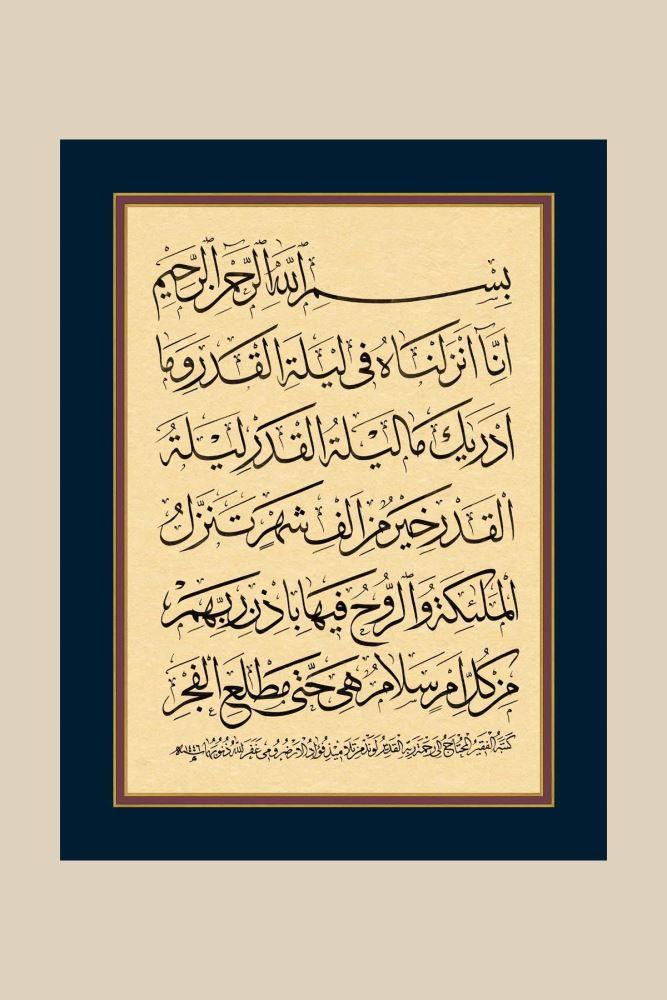 بِسْمِ اللّٰهِ الرَّحْمٰنِ الرَّحِيمِ
اِنَّآ اَنْزَلْنَاهُ فِى لَيْلَةِ الْقَدْرِ وَمَا
اَدْرٰيكَ مَا لَيْلَةُ الْقَدْرِ لَيْلَةُ
الْقَدْرِ خَيْرٌ مِنْ اَلْفِ شَهْرٍ تَنَزَّلُ
الْمَلٰئِكَةُ وَالرُّوحُ فِيهَا بِاِذْنِ رَبِّهِمْ
مِنْ كُلِّ اَمْرٍ سَلَامٌ هِىَ حَتّٰى مَطْلَعِ الْفَجْرِ
كتبه الفقير المحتاج الى رحمة ربه القدير لوند من تلاميذ فؤاد الارضرومى غفر الله ذنوبهما ١٤٤٦ه